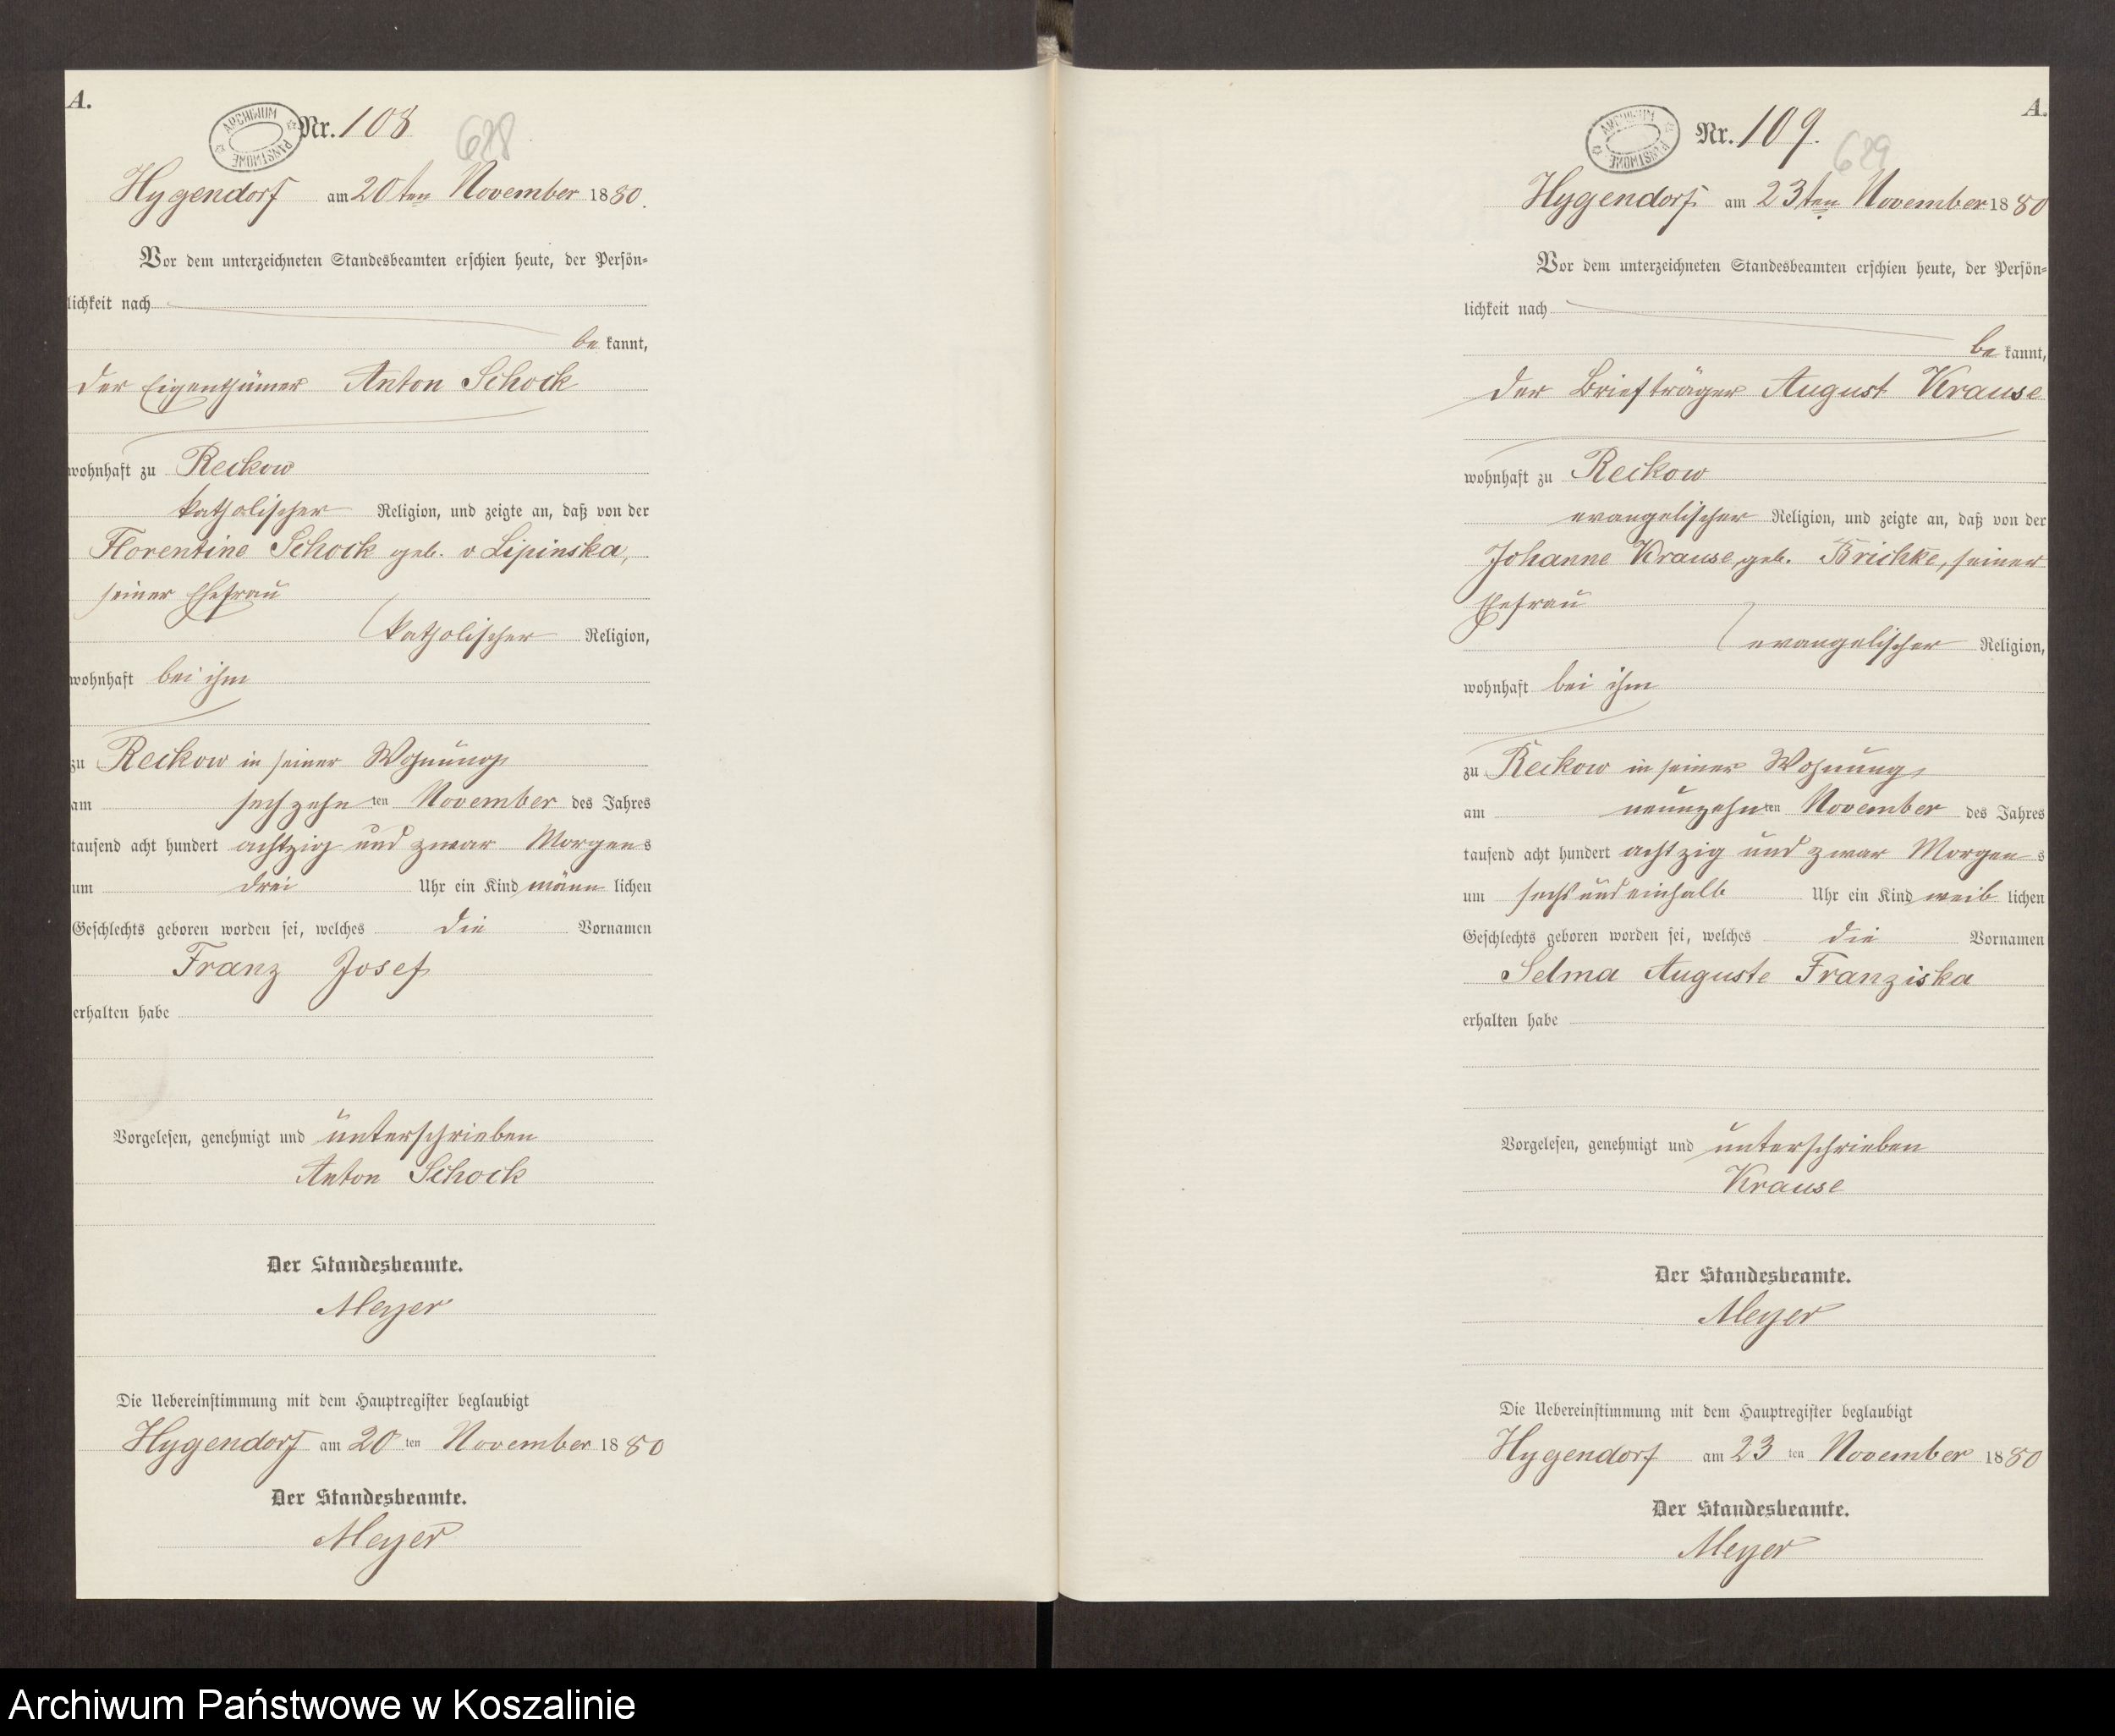 A.
ARCHIWUM PAŃSTWOWE
Nr. 108
628
Hygendorf am 20ten November 1880.
Vor dem unterzeichneten Standesbeamten erschien heute, der Persön-
lichkeit nach
be kannt,
der Eigenthümer Anton Schock
wohnhaft zu Reckow
katholischer Religion, und zeigte an, daß von der
Florentine Schock geb. v Lipinska,
seiner Ehefrau
katholischer Religion,
wohnhaft bei ihm
zu Reckow in seiner Wohnung
am sechzehn ten November des Jahres
tausend acht hundert achtzig und zwar Morgens
um drei Uhr ein Kind männ lichen
Geschlechts geboren worden sei, welches die Vornamen
Franz Josef
erhalten habe
Vorgelesen, genehmigt und unterschrieben
Anton Schock
Der Standesbeamte.
Meyer
Die Uebereinstimmung mit dem Hauptregister beglaubigt
Hygendorf am 20 ten November 1880
Der Standesbeamte.
Meyer
A.
ARCHIWUM PAŃSTWOWE
Nr. 109.
629
Hygendorf am 23ten November 1880
Vor dem unterzeichneten Standesbeamten erschien heute, der Persön-
lichkeit nach
be kannt,
der Briefträger August Krause
wohnhaft zu Reckow
evangelischer Religion, und zeigte an, daß von der
Johanne Krause geb. Brichke, seiner
Ehefrau
evangelischer Religion,
wohnhaft bei ihm
zu Reckow in seiner Wohnung
am neunzehn ten November des Jahres
tausend acht hundert achtzig und zwar Morgens
um sechs und einhalb Uhr ein Kind weib lichen
Geschlechts geboren worden sei, welches die Vornamen
Selma Auguste Franziska
erhalten habe
Vorgelesen, genehmigt und unterschrieben
Krause
Der Standesbeamte.
Meyer
Die Uebereinstimmung mit dem Hauptregister beglaubigt
Hygendorf am 23 ten November 1880
Der Standesbeamte.
Meyer
Archiwum Państwowe w Koszalinie